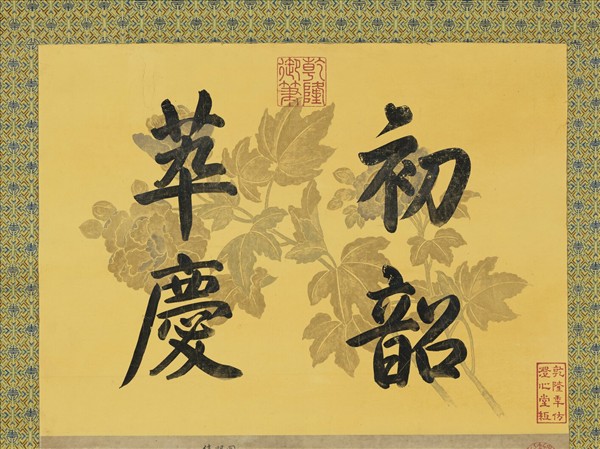 乾隆
御筆
初韶
萃慶
乾隆年仿
澄心堂紙